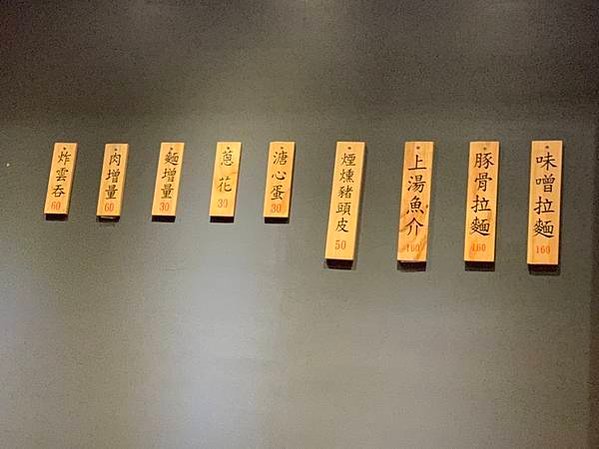 味噌拉麵
160
豚骨拉麵
160
上湯魚介
160
煙燻豬頭皮
50
溏心蛋
30
蔥花
30
麵增量
30
肉增量
60
炸雲吞
60